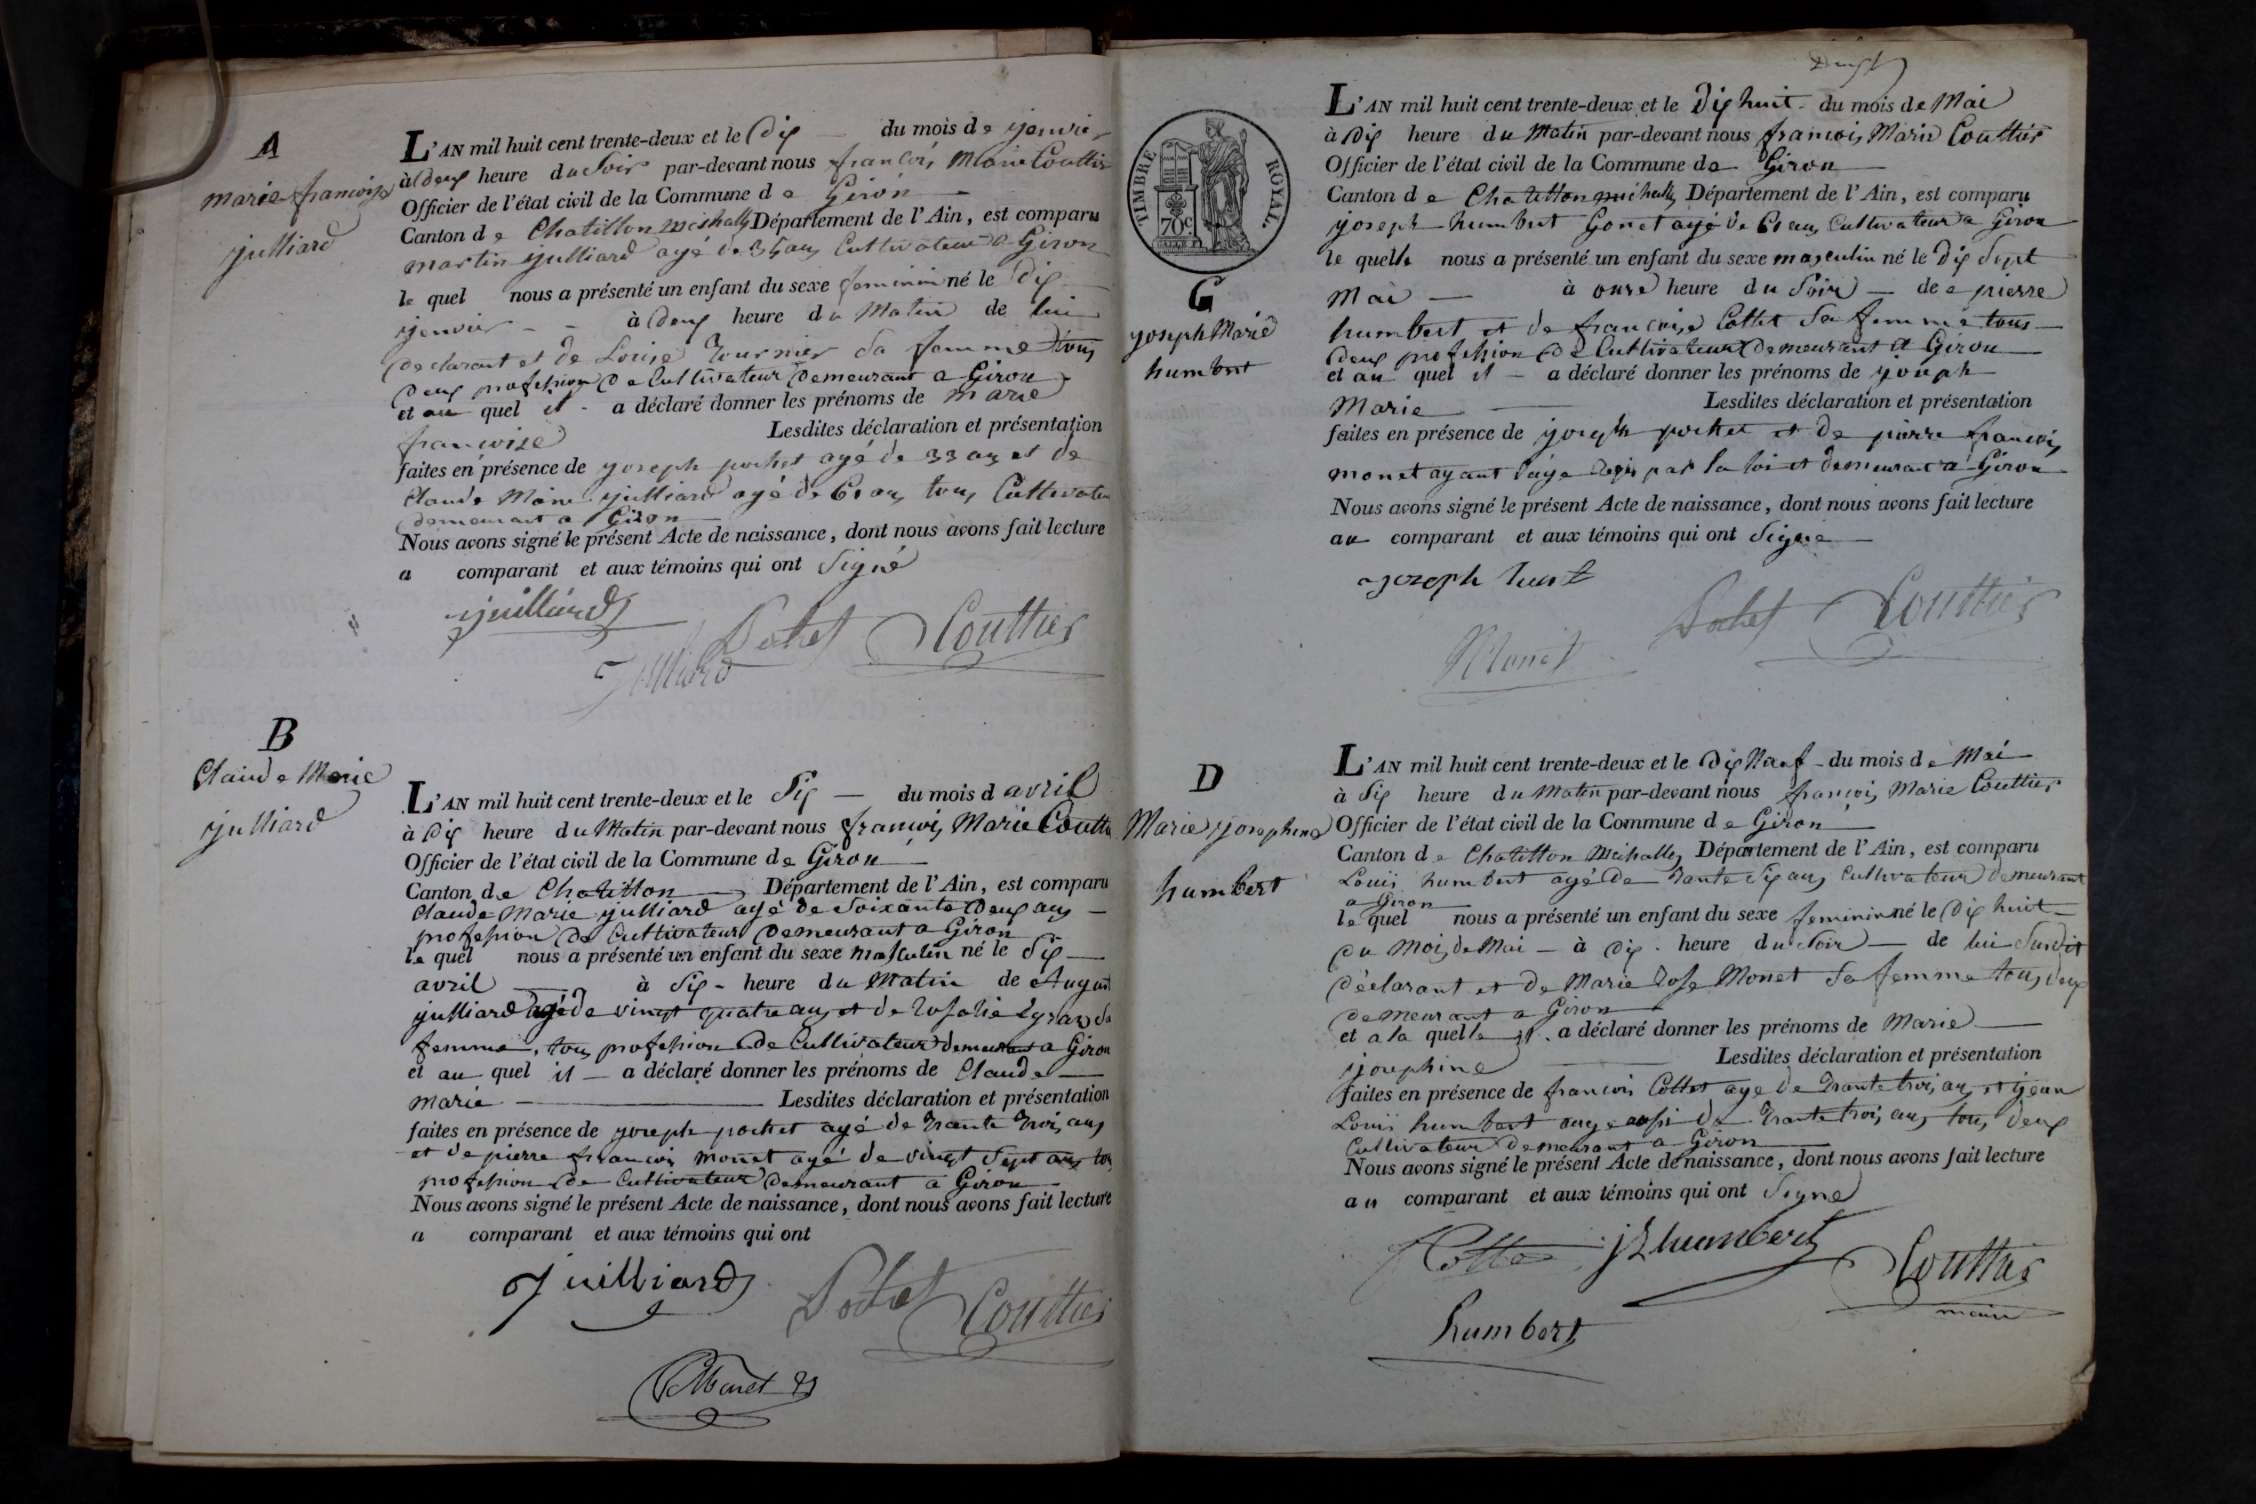 A
marie francoise
julliard
L'AN mil huit cent trente-deux et le dix — du mois de janvier
à deux heure du Soir par-devant nous francois Marie Couttier
Officier de l'état civil de la Commune de Giron
Canton de Chatillon michally Département de l'Ain, est comparu
martin julliard agé de 35 ans Cultivateur a Giron
le quel nous a présenté un enfant du sexe feminin né le dix
janvier — à deux heure du Matin de lui
declarant et de Louise Tournier sa femme tous
deux profession de Cultivateur demeurant a Giron
et au quel il - a déclaré donner les prénoms de marie
francoise Lesdites déclaration et présentation
faites en présence de joseph pochet agé de 33 ans et de
Claude Marie julliard agé de 61 ans tous Cultivateur
demeurant a Giron
Nous avons signé le présent Acte de naissance, dont nous avons fait lecture
a comparant et aux témoins qui ont Signé
juilliard
Pochet Couttier
Julliard
B
Claude Marie
julliard
L'AN mil huit cent trente-deux et le Six — du mois d avril
à Dix heure du Matin par-devant nous francois Marie Coutti
Officier de l'état civil de la Commune de Giron
Canton de Chatillon — Département de l'Ain, est comparu
Claude Marie julliard agé de Soixante deux ans —
profession de Cultivateur demeurant a Giron
le quel nous a présenté un enfant du sexe masculin né le Six —
avril — à Six - heure du Matin de August
julliard agé de vingt quatre ans et de Rosalie sa
femme, tous profession de Cultivateur demeurant a Giron
et au quel il — a déclaré donner les prénoms de Claude —
marie — Lesdites déclaration et présentation
faites en présence de joseph pochet agé de Trante Trois ans
et de pierre francois monet agé de vingt Sept ans tous
profession de Cultivateur demeurant a Giron
Nous avons signé le présent Acte de naissance, dont nous avons fait lecture
a comparant et aux témoins qui ont
Juilliard
Pochet Couttier
Monet
TIMBRE ROYAL.
70c
C
joseph Marie
humbert
L'AN mil huit cent trente-deux et le Dix huit - du mois de Mai
à Dix heure du Matin par-devant nous francois Marie Couttier
Officier de l'état civil de la Commune de Giron
Canton de Chatillon michally Département de l'Ain, est comparu
joseph humbert Gonet agé de 61 ans Cultivateur a Giron
le quelle nous a présenté un enfant du sexe masculin né le Dix Sept
Mai — à onze heure du Soir — de pierre
humbert et de francoise Cottet Sa femme tous —
deux profession de Cultivateur demeurant a Giron
et au quel il — a déclaré donner les prénoms de joseph —
Marie — Lesdites déclaration et présentation
faites en présence de joseph pochet et de pierre francois
monet ayant l'age par la loi et demeurant a Giron
Nous avons signé le présent Acte de naissance, dont nous avons fait lecture
au comparant et aux témoins qui ont Signé —
jozeph
Pochet Couttier
Monet
D
Marie josephine
humbert
L'AN mil huit cent trente-deux et le Dix Neuf - du mois de Mai
à Six heure du Matin par-devant nous francois Marie Couttier
Officier de l'état civil de la Commune de Giron
Canton de Chatillon Michally Département de l'Ain, est comparu
Louis humbert agé de Trante Six ans Cultivateur demeurant
a Giron
le quel nous a présenté un enfant du sexe feminin né le Dix huit —
du Mois de Mai — à dix - heure du Soir — de lui Susdit
Déclarant et de Marie Rose Monet Sa femme tous deux
demeurant a Giron
et a la quelle il - a déclaré donner les prénoms de Marie —
josephine — Lesdites déclaration et présentation
faites en présence de francois Cottet agé de Trante trois ans et jean
Louis humbert agé aussi de Trante trois ans tous deux
Cultivateur demeurant a Giron
Nous avons signé le présent Acte de naissance, dont nous avons fait lecture
au comparant et aux témoins qui ont Signé
Cottet jLhumbert Couttier
maire
humbert